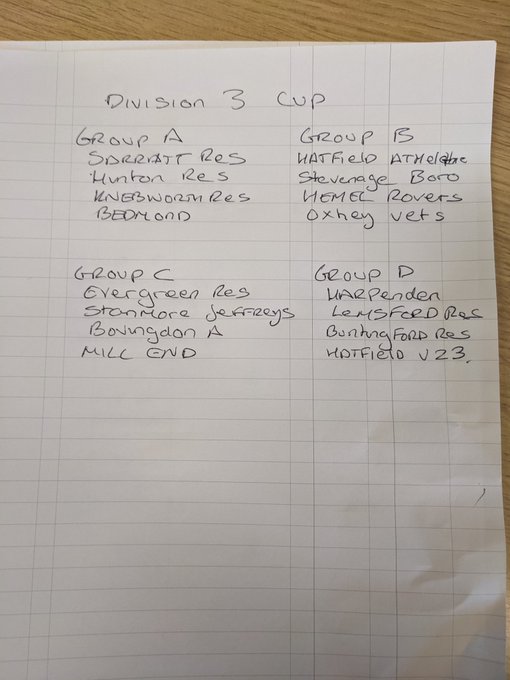 Division 3 Cup
Group A
Sarratt Res
Hunton Res
Knebworth Res
Bedmond
Group B
Hatfield Athletic
Stevenage Boro
Hemel Rovers
Oxhey vets
Group C
Evergreen Res
Stanmore Jeffreys
Bovingdon A
Mill End
Group D
Harpenden
Lemsford Res
Buntingford Res
Hatfield U23.